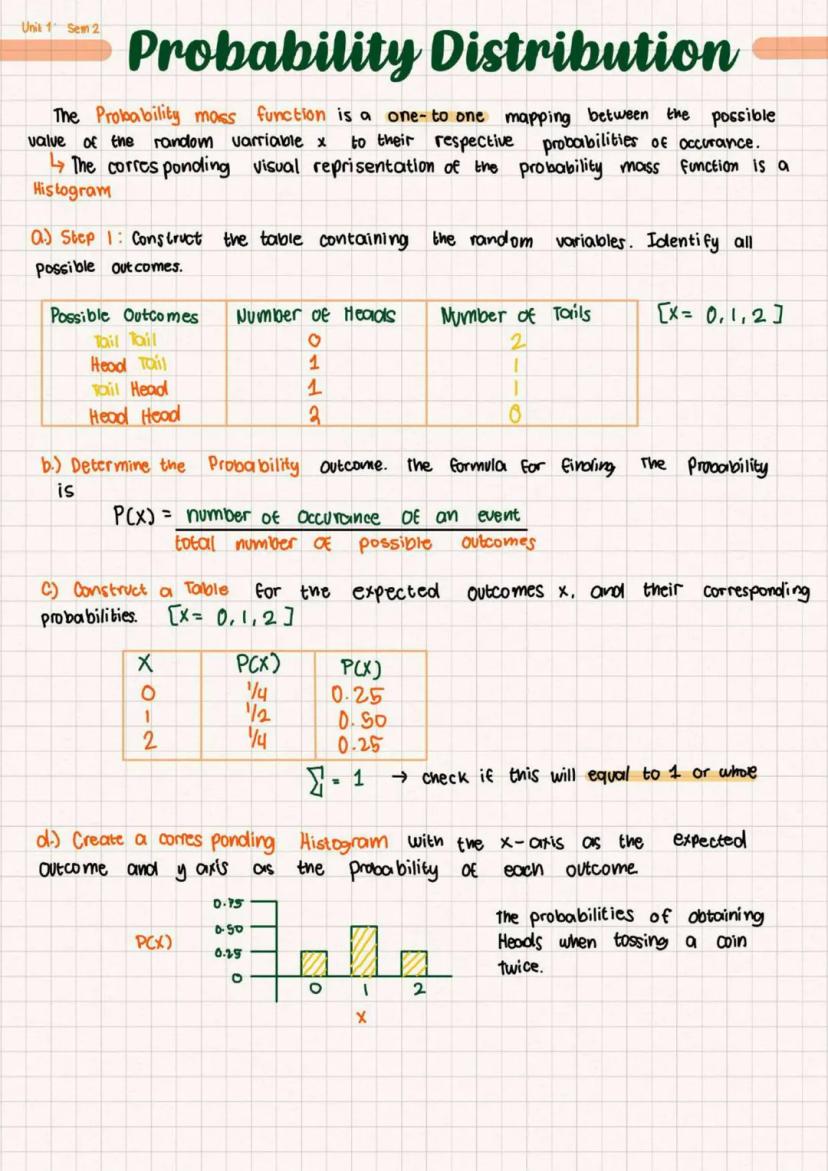 Unit 1 Sem 2
Probability Distribution
The Probability mass function is a one-to one mapping between the possible
value of the random varriable x to their respective probabilities of occurance.
↳ The corresponding visual reprisentation of the probability mass function is a
Histogram
a.) Step 1: Construct the table containing the random variables. Identify all
possible outcomes.
Possible Outcomes Number of Heads Number of Tails [X = 0, 1, 2]
Tail Tail 0 2
Head Tail 1 1
Tail Head 1 1
Head Head 2 0
b.) Determine the Probability outcome. the formula for finding The Probability
is
P(X) = number of occurance of an event
total number of possible outcomes
c) Construct a Table for the expected outcomes x, and their corresponding
probabilities. [X = 0, 1, 2]
X P(X) P(X)
0 1/4 0.25
1 1/2 0.50
2 1/4 0.25
∑ = 1 → check if this will equal to 1 or whole
d.) Create a corresponding Histogram with the x-axis as the expected
outcome and y axis as the probability of each outcome.
0.75
0.50
P(X)
0.25
0
0 1 2
X
the probabilities of obtaining
Heads when tossing a coin
twice.